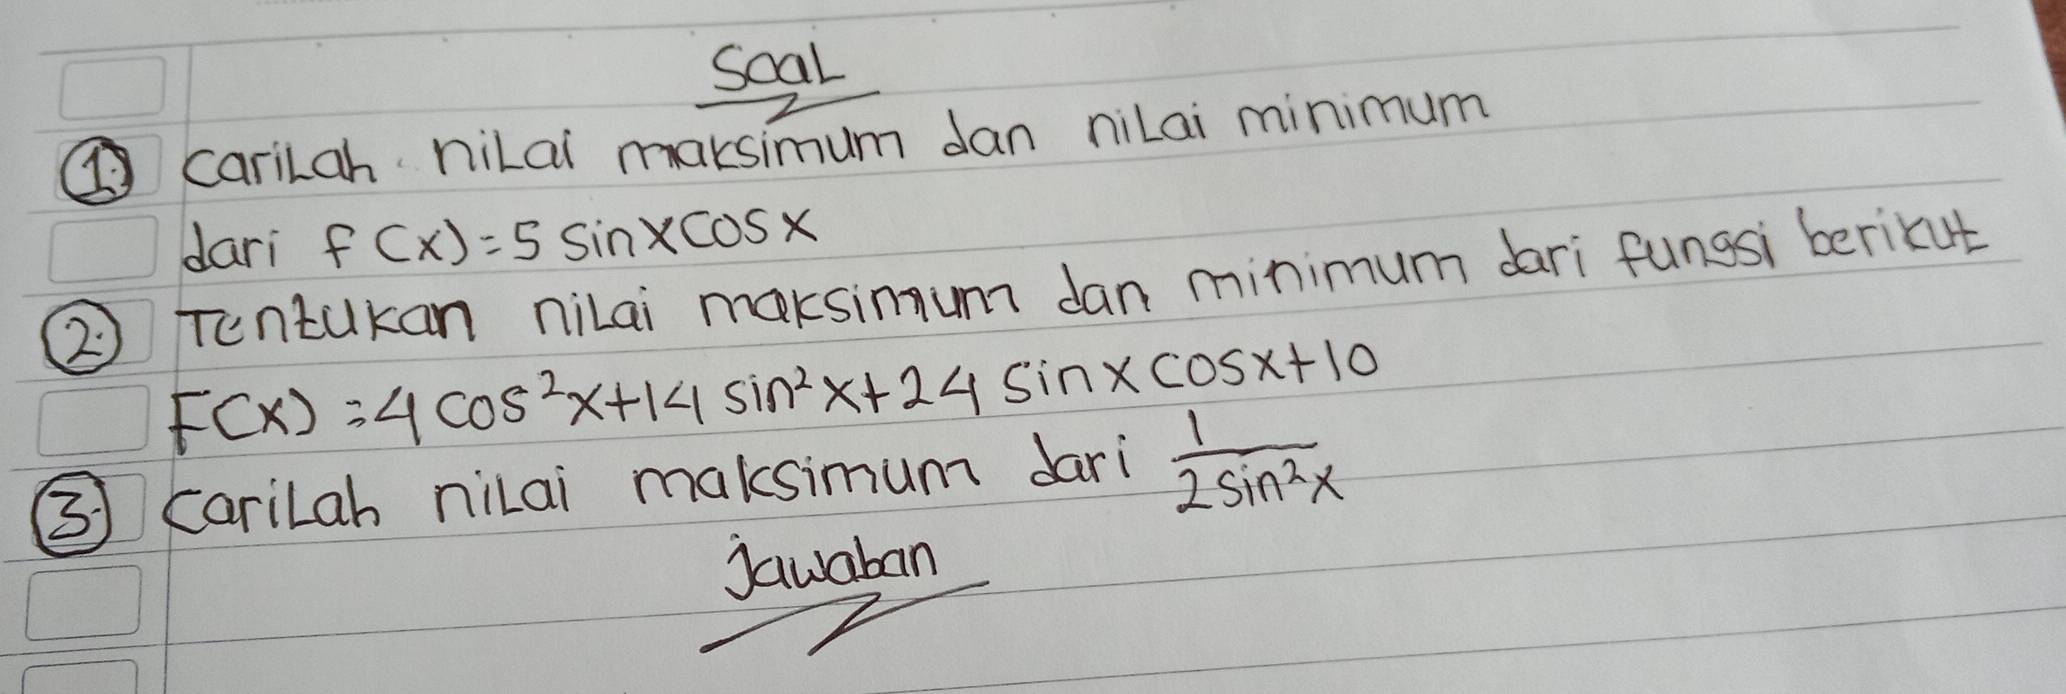 Soal
1. Carilah nilai maksimum dan nilai minimum
dari f(x)=5 sinxcosx
2. Tentukan nilai maksimum dan minimum dari fungsi berikut
F(x)=4 cos²x+14 sin²x+24 sinx cosx+10
3. Carilah nilai maksimum dari 1/2sin²x
Jawaban